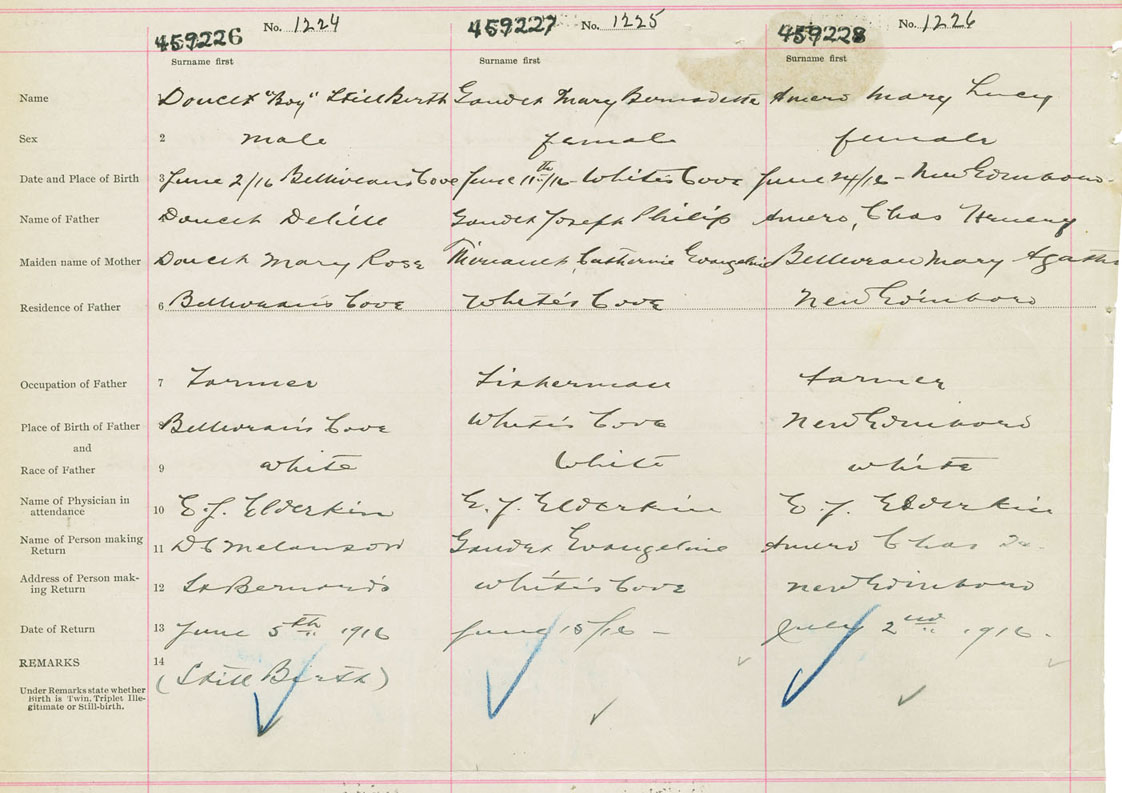 459226 No. 1224 459227 No. 1225 459228 No. 1226
Surname first Surname first Surname first
Name Doucet "Boy" Still Birth Gaudet Mary Bernadette Amero Mary Lucy
Sex 2 male female female
Date and Place of Birth 3 June 2/16 Belliveau's Cove June 11th/16 - White's Cove June 24/16 - New Edinboro.
Name of Father Doucet Delille Gaudet Joseph Philip Amero, Chas
Maiden name of Mother Doucet Mary Rose Theriault, Catherine Evangeline Belliveau Mary Agatha
Residence of Father 6 Belliveau's Cove White's Cove New Edinboro
Occupation of Father 7 Farmer Fisherman farmer
Place of Birth of Father Belliveau's Cove White's Cove New Edinboro
and
Race of Father 9 white White white
Name of Physician in 
attendance 10 E. J. Elderkin E. J. Elderkin E. J. Elderkin
Name of Person making
Return 11 D C Melanson Gaudet Evangeline Amero Chas
Address of Person mak-
ing Return 12 St Bernard's White's Cove New Edinboro
Date of Return 13 June 5th 1916 June 15/16 - July 2nd 1916.
REMARKS 14 (Still Birth)
Under Remarks state whether
Birth is Twin, Triplet Ille-
gitimate or Still-birth.